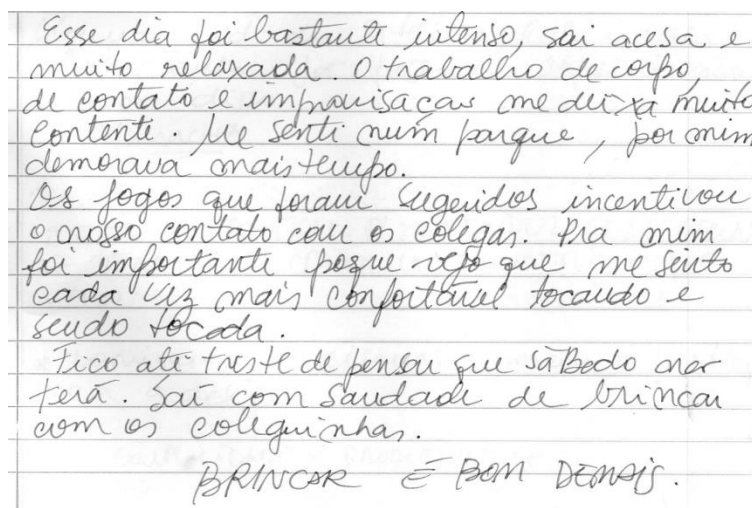 Esse dia foi bastante intenso, sai acesa e
muito relaxada. O trabalho de corpo,
de contato e improvisaçao me deixa muito
contente. Me senti num parque, por mim
demorava mais tempo.
Os jogos que foram sugeridos incentivou
o nosso contato com os colegas. Pra mim
foi importante porque vejo que me sinto
cada vez mais confortável tocando e
sendo tocada.
Fico até triste de pensar que sábado não
terá. Saí com saudade de brincar
com os coleguinhas.
BRINCAR É BOM DEMAIS.